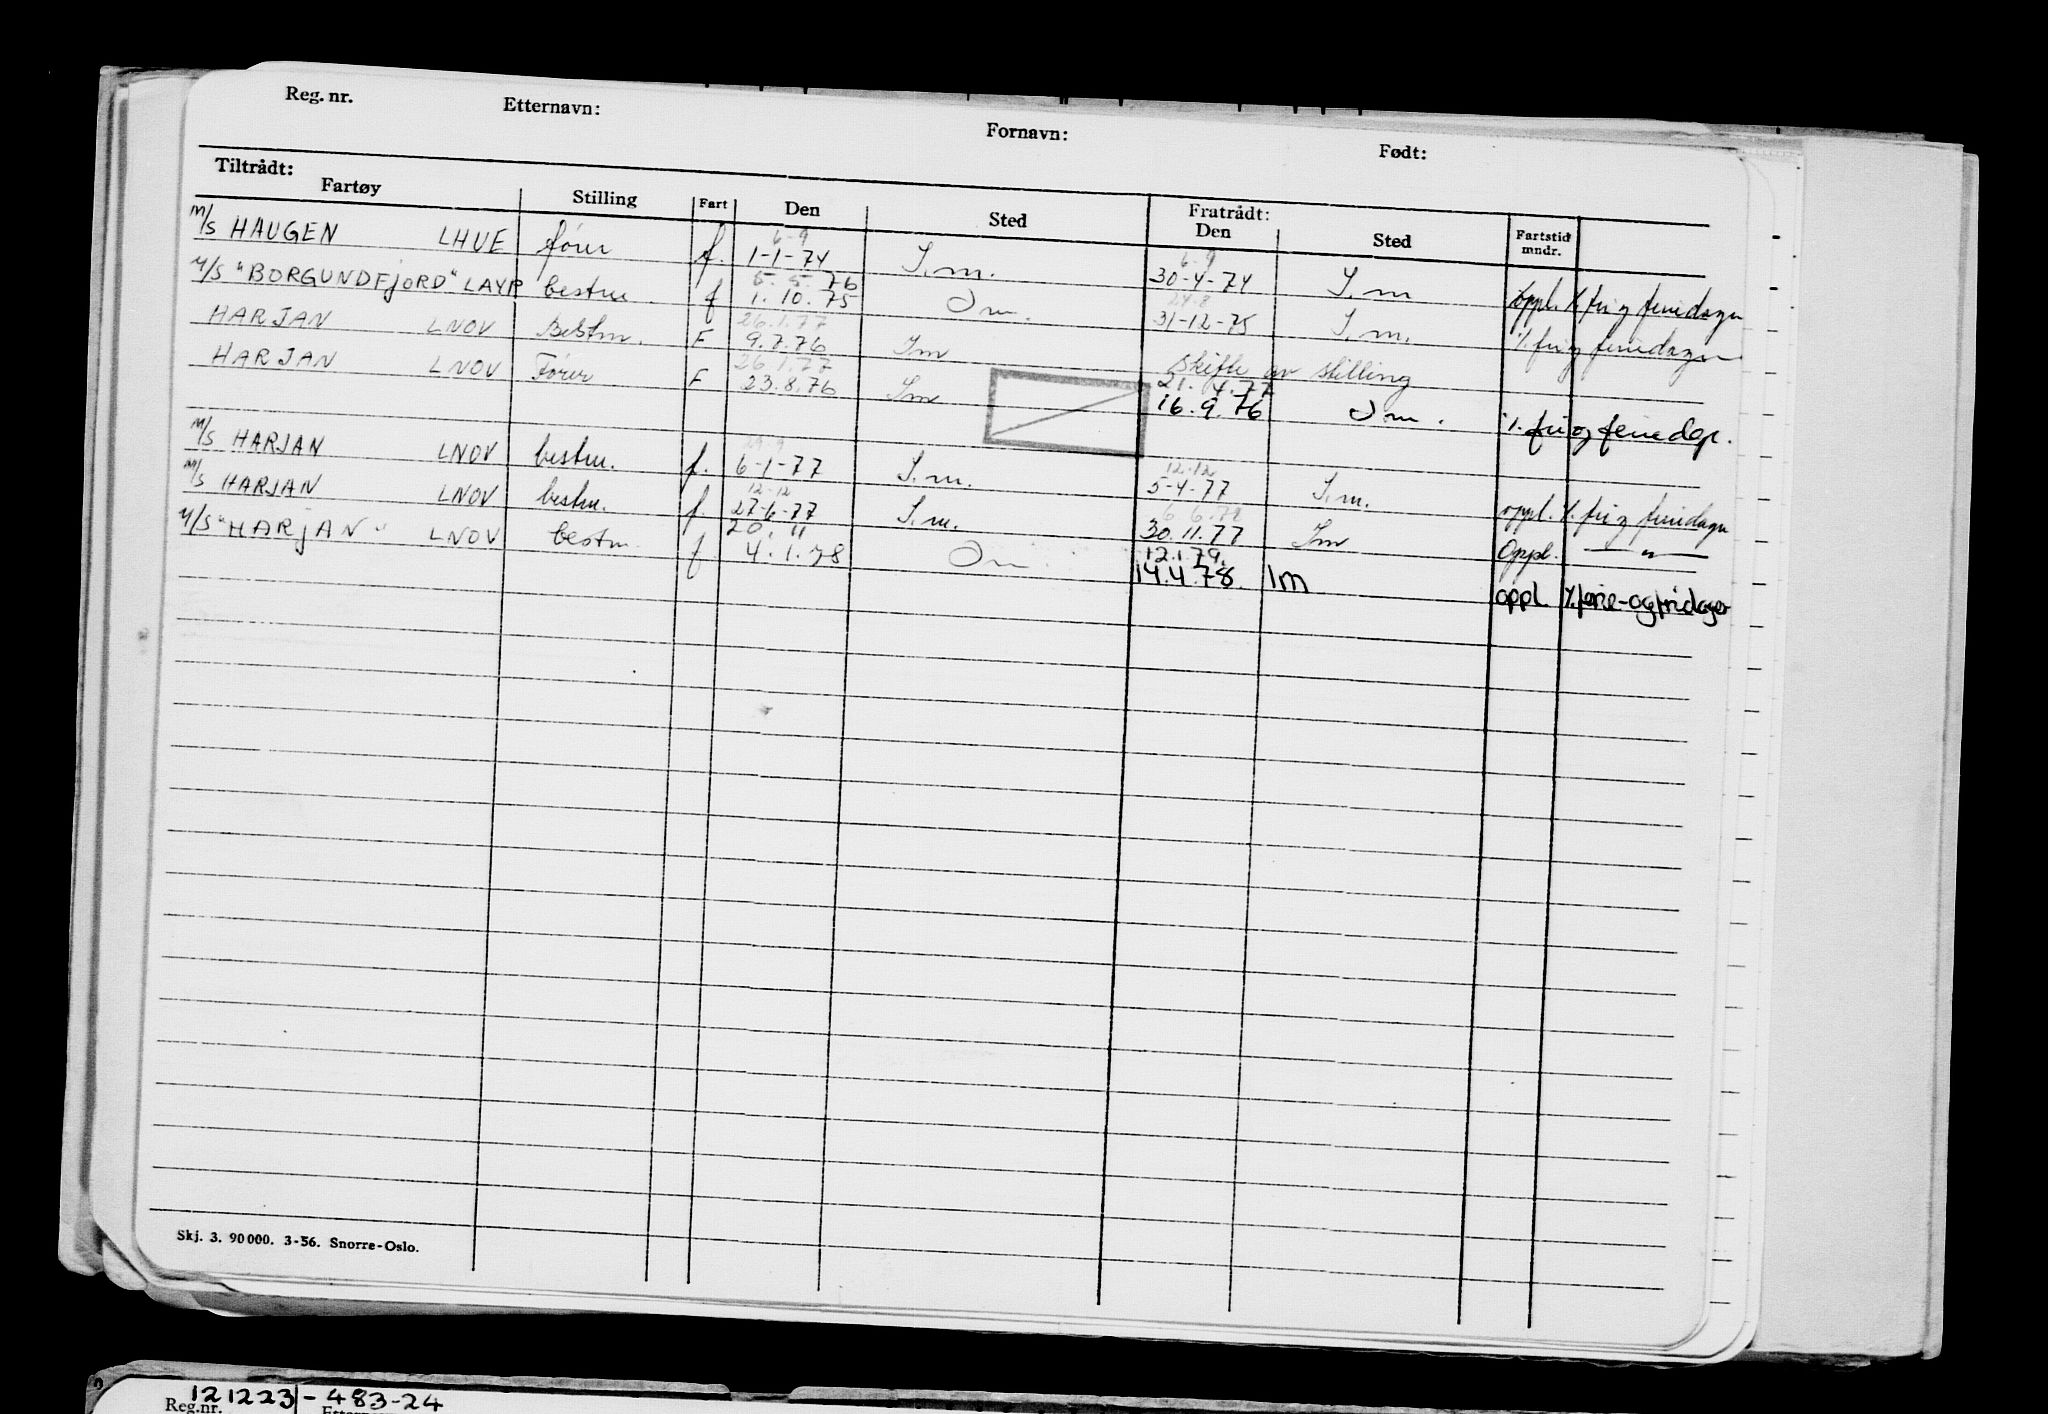 Reg. nr. Etternavn: Fornavn: Født:
Tiltrådt: Fratrådt:
Fartøy Stilling Fart Den Sted Den Sted Fartstid mndr.
6-9 6-9
M/S HAUGEN LHUE fører f. 1-1-74 I.m. 30-4-74 I.m oppl. %. fri og feriedager
5. 5. 76 24.8
M/S "BORGUNDFJORD" LAYP bestm f 1. 10. 75 Im. 31-12-75 I.m. %. fri og feriedager
26.1.77
HARJAN LNOV Bestm. F 9.7.76 Im Skifte av stilling
26.1.77 21. 4. 77
HARJAN LNOV Fører F 23.8.76 Im 16. 9. 76 Im. %. fri og feriedgr.
29.9 12-12
M/S HARJAN LNOV bestm. f. 6-1-77 I.m. 5-4-77 I.m. oppl. %. fri og feriedager
12-12 6 6.78
M/S HARJAN LNOV bestm. f. 27-6-77 I.m. 30.11.77 Im Oppl. — " —
20. " 12.1.79.
M/S "HARJAN" LNOV bestm f 4.1.78 Im 14.4.78 Im oppl. %. ferie-og fridager
Skj. 3. 90 000. 3-56. Snorre-Oslo.
121223-483-24
Reg.nr.